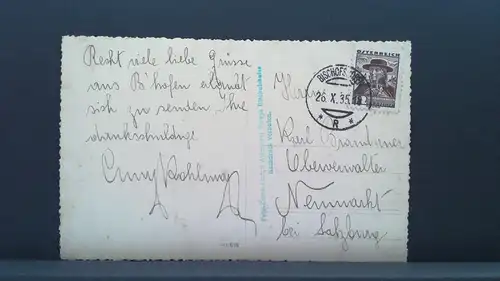 Recht viele liebe Grüsse
aus B'hofen erlaubt
sich zu senden, Ihre
dankschuldige
ÖSTERREICH
BISCHOFS
26. X. 35
* R *
Herrn
Karl Brandtner
Oberverwalter
Neumarkt
bei Salzburg